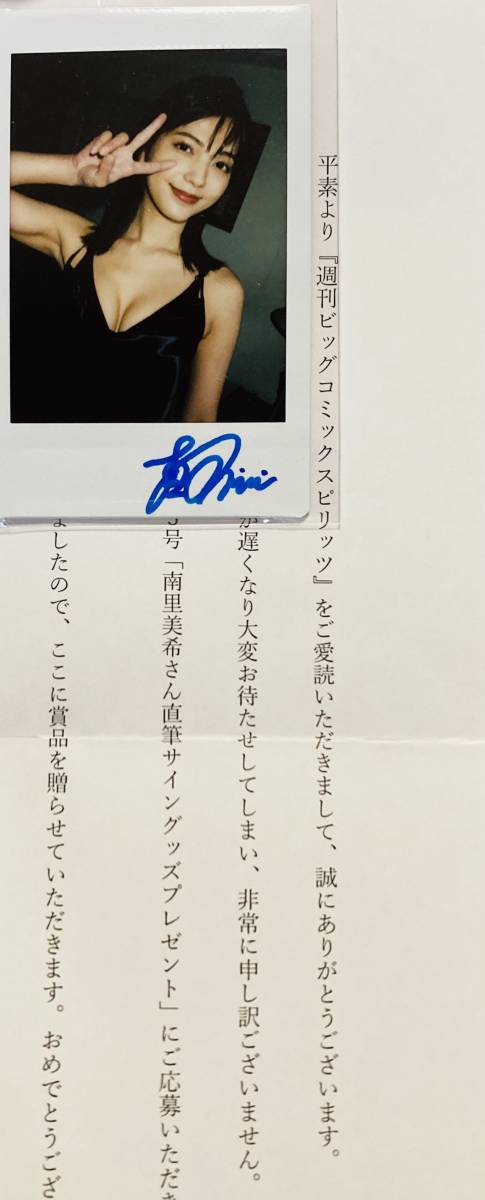 平素より『週刊ビッグコミックスピリッツ』をご愛読いただきまして、誠にありがとうございます。
が遅くなり大変お待たせしてしまい、非常に申し訳ございません。
号「南里美希さん直筆サイングッズプレゼント」にご応募いただき
ましたので、ここに賞品を贈らせていただきます。おめでとうござ